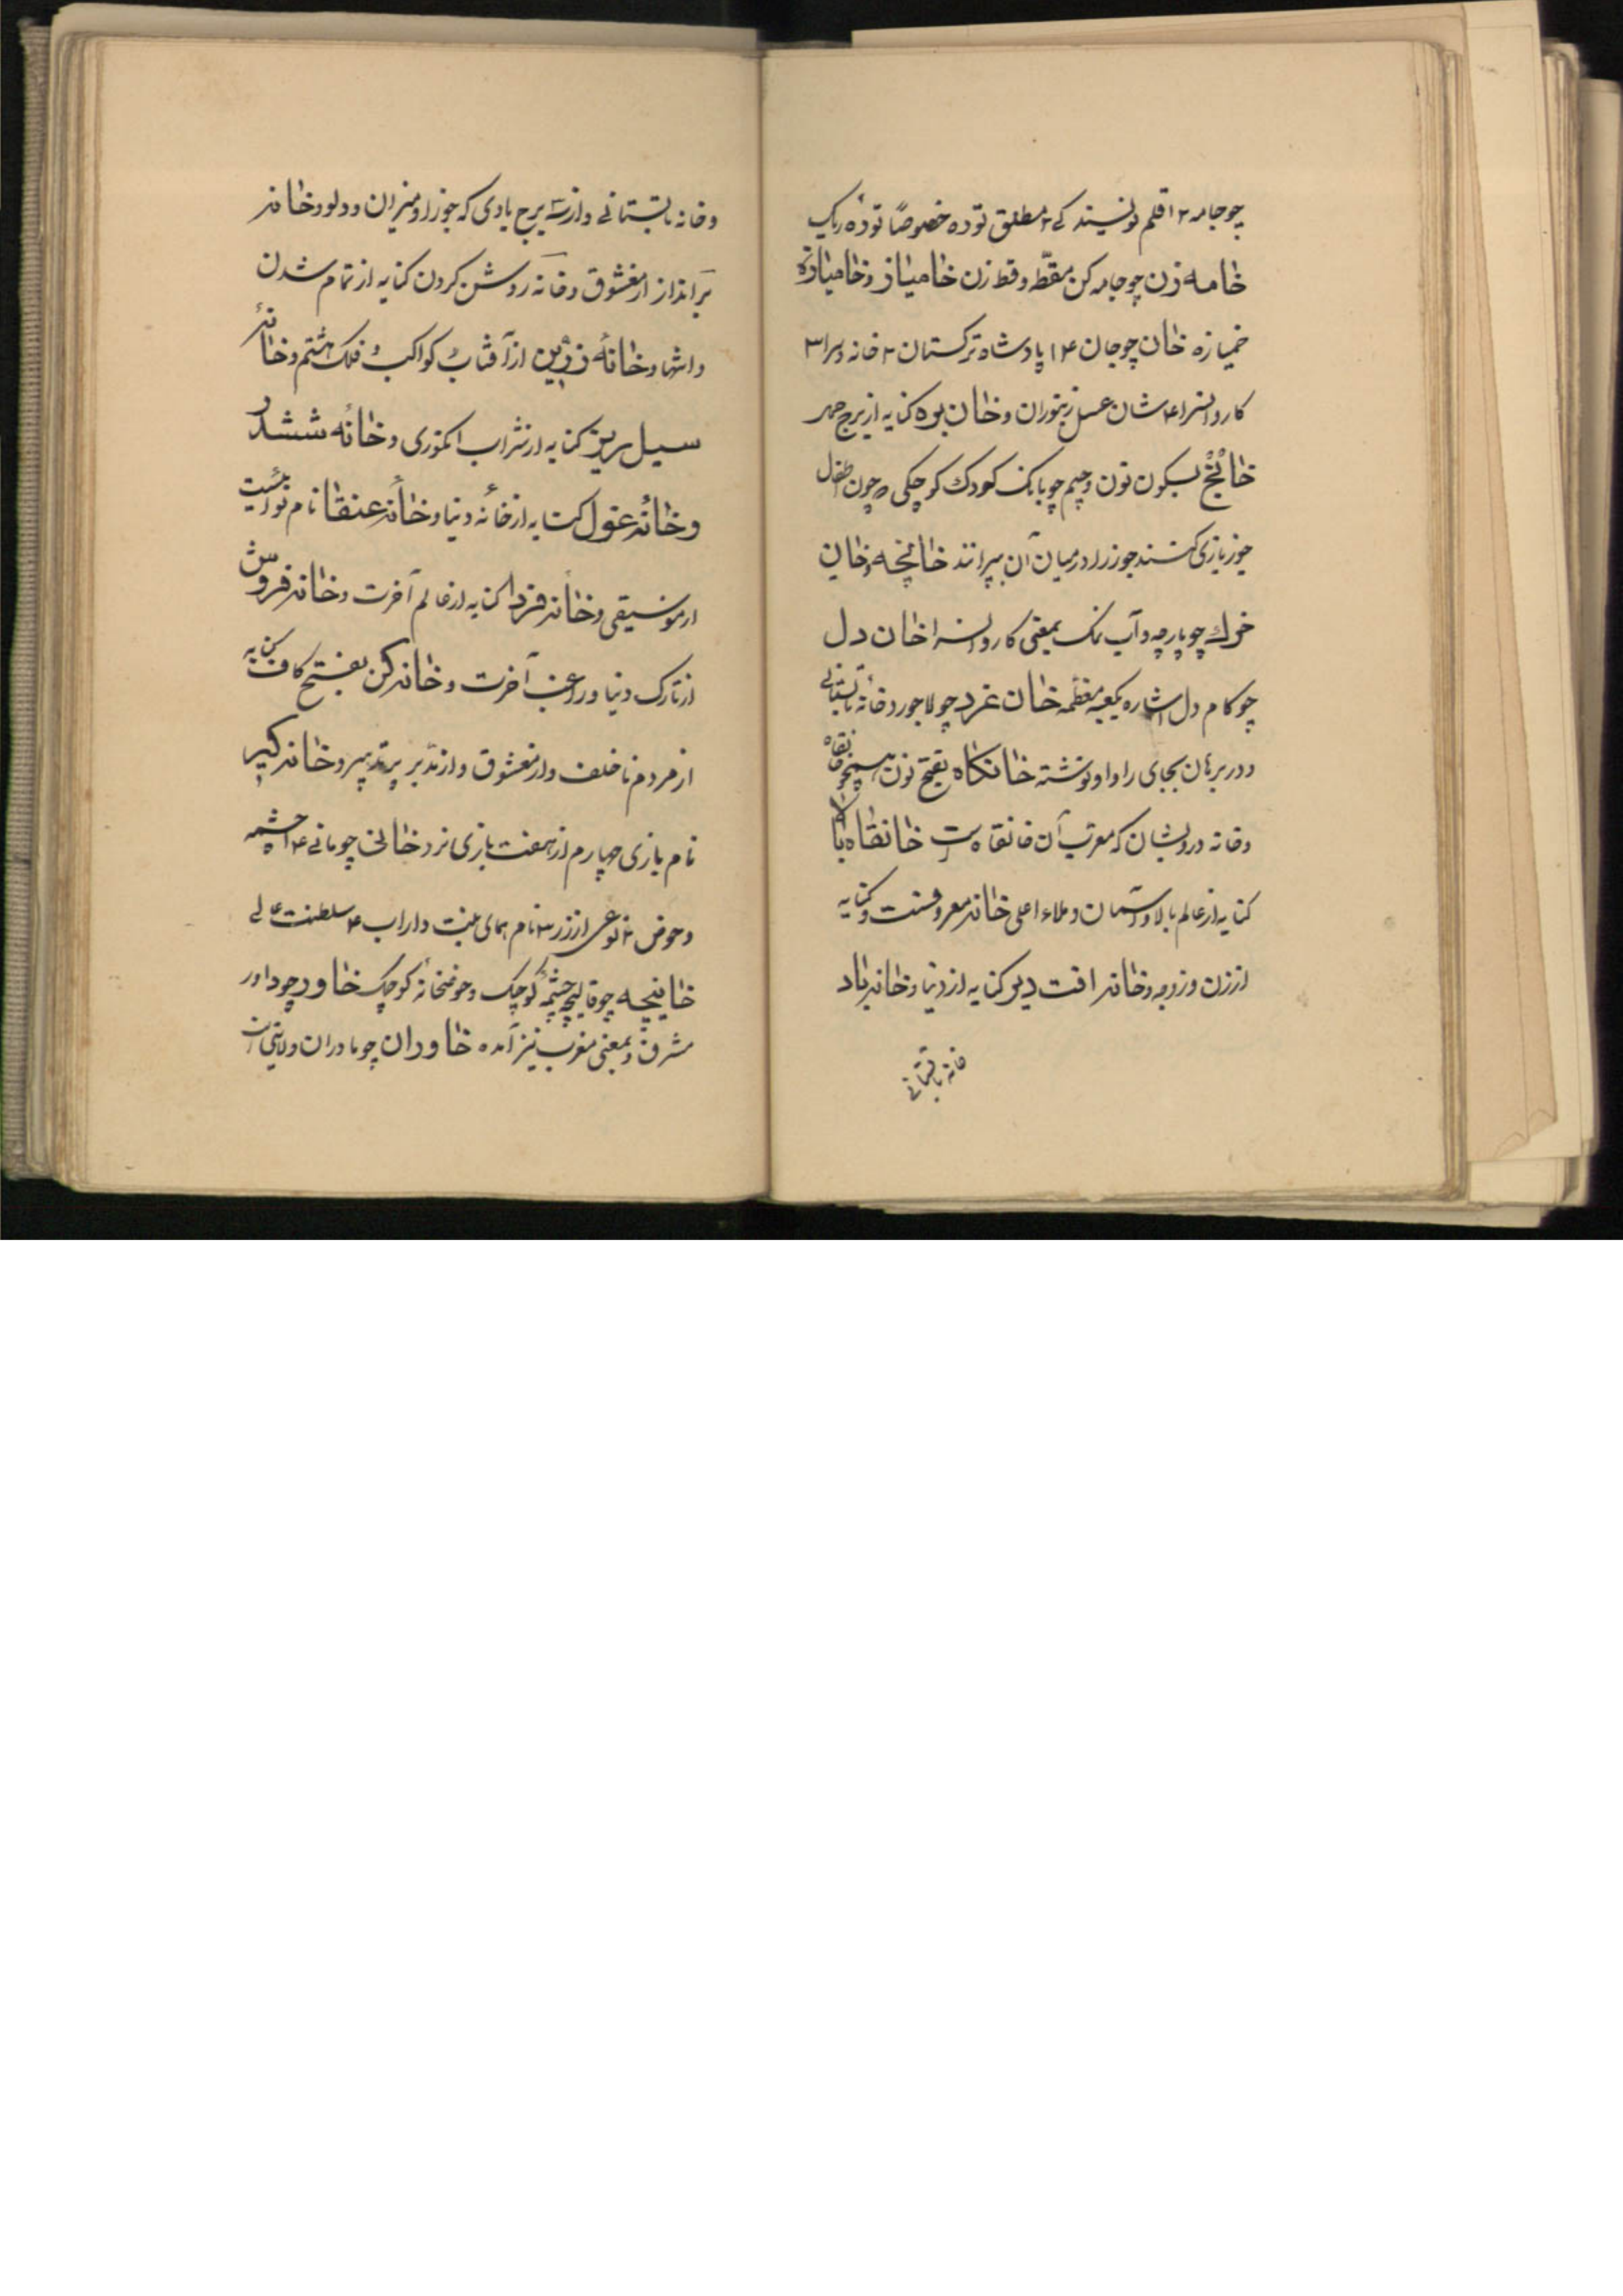 چو جامه ۲ ۱ قلم نویسندگی ۲ مطلق توده خصوصاً تودهٔ ریگ
خامه زن چو جامه کن مقطّ و قط زن خامیاز و خامیازه
خمیازه خان چو جان ۱۴ پادشاه ترکستان ۲ خانه و سرا ۳
کاروانسرا ۴ شان عسل زنبوران و خان بره کنایه از برج حمل
خانج بسکون نون و جیم چو بانک کودک کوچکی چون طفل
جوز بازی کنند جوز را در میان آن بپرانند خانچه و خان
خرک چو پارچه و آب نمک بمعنی کاروانسرا خان دل
چو کام دل اشاره بکعبه معظمه خان غرد چو لاجورد خانهٔ تابستانی
و در برهان بجای را واو نوشته خانکاه بفتح نون
و خانه درویشان که معرب آن خانقاه است خانقاه بالا
کنایه از عالم بالا و آسمان و ملاء اعلی خانه معروفست و کنایه
از زن و زوجه و خانه افت دیر کنایه از دنیا و خانه باد
خانه تابستانی
و خانه تابستانی و از سه برج بادی که جوزا و میزان و دلو و خانه
برانداز از معشوق و خانه روشن کردن کنایه از تمام شدن
و اشها و خانهٔ زرین از آفتاب کواکب و فلک هشتم و خانهٔ
سیل ریز کنایه از شراب انگوری و خانهٔ ششدر
و خانه غول کنایه از خانه دنیا و خانه عنقا نام نوائیست
از موسیقی و خانه فردا کنایه از عالم آخرت و خانه فروش
از تارک دنیا و راغب آخرت و خانه کن بفتح کاف کنایه
از مردم ناخلف و از معشوق و از تدبر پسر و خانه گیر
نام بازی چهارم از هفت بازی نرد خانی چو مانی ۱۴ چشمه
و حوض ۲ نوعی از زر ۳ نام همای بنت داراب ۴ سلطنت
خانیچه چو قالیچه چشمهٔ کوچک و حوضخانهٔ کوچک خاور چو داور
مشرق و بمعنی مغرب نیز آمده خاوران چو مادران ولایتی است